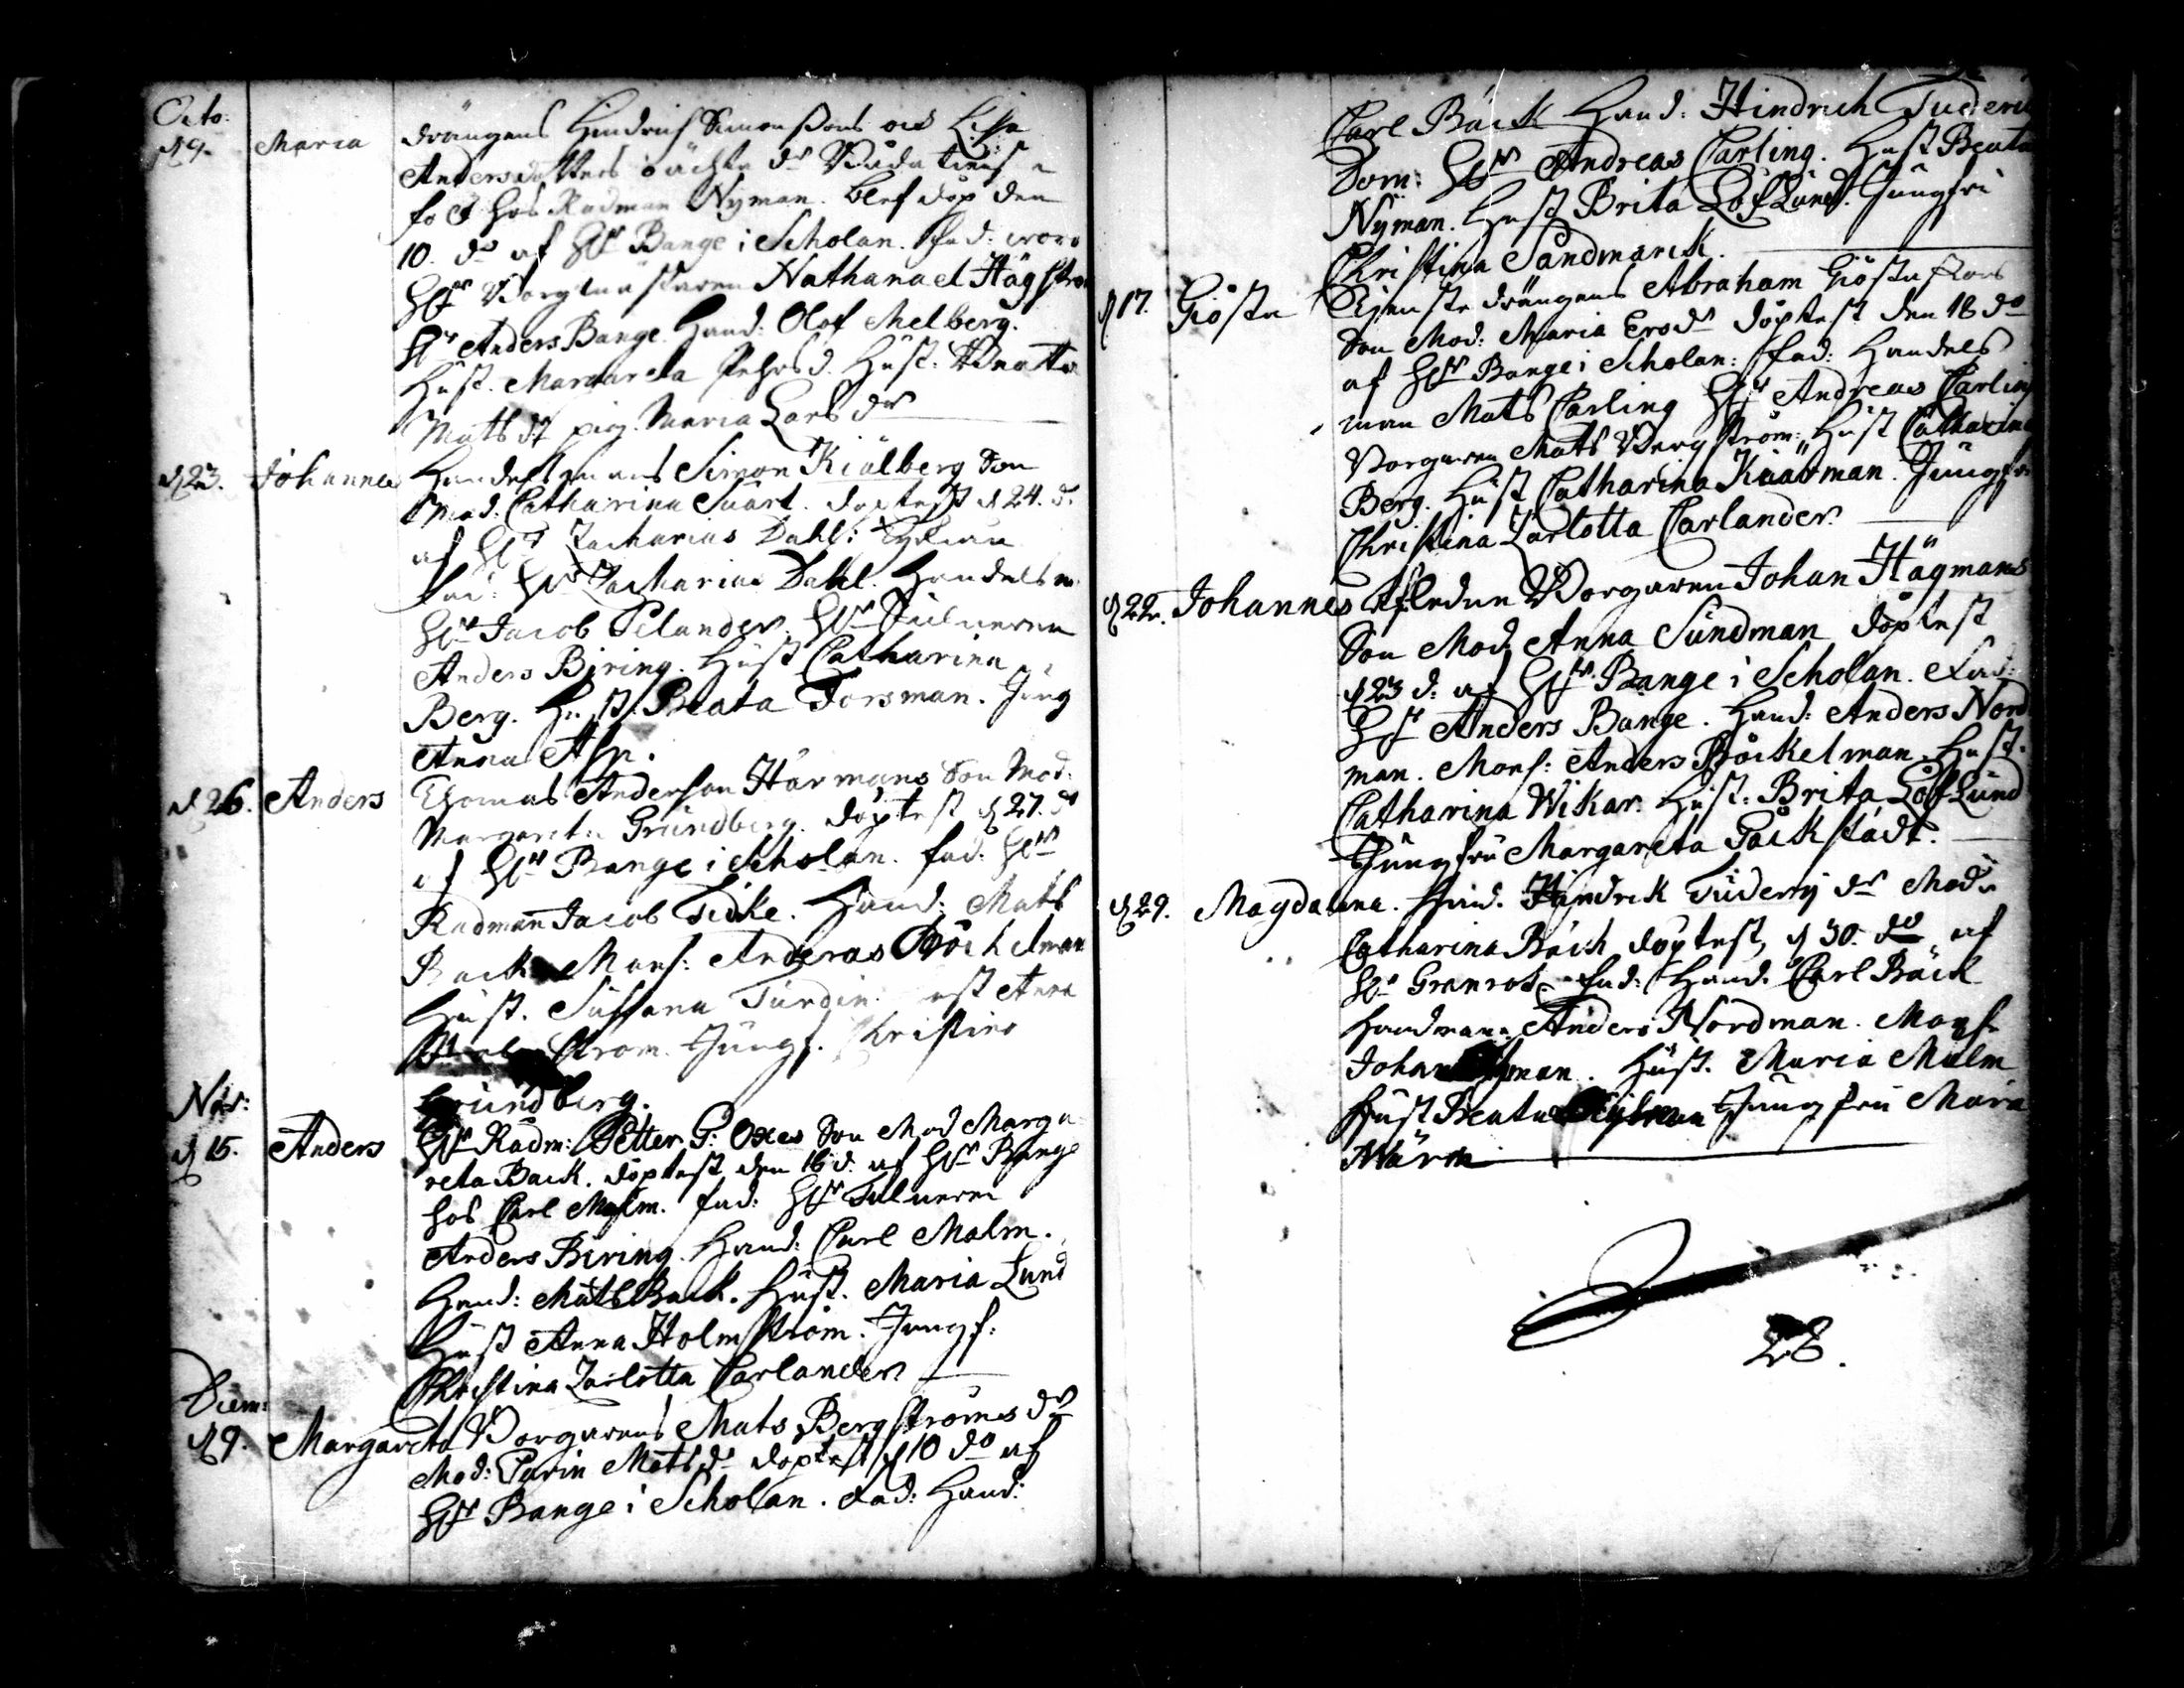 Octo:
d 9. Maria drängens Hindrich Simonssons och Lisa
Andersdotters oächta dr Båda tiens
folck hos Radman Nyman. blef döpt den
10. do af Hr Bange i Scholan. fad: woro
Hr Borgmästaren Nathanael Hägström
Hr Anders Bange. Hand: Olof Melberg.
Hust. Margareta Pehrsd. Hust: Beata
Mats dr pig. Maria Lars dr
d 23. Johannes Handelsmans Simon Kiälberg Son
Mod. Catharina Suart. döptest d 24. d.
af Hr Zacharias Dahl:
fad: Hr Zacharias Dahl. Handelsm.
Hr Jacob Pelander. Hr Tulneren
Anders Biring. Hust Catharina
Berg. Hust. Beata Forsman. Jung
Anna Alm.
d 26. Anders Thomas Anderson Harmans Son Mod:
Margareta Grundberg. döptest d 27. do
af Hr Bange i Scholan. fad: Hr
Radman Jacob Ticke. Hand: Mats
Back. Mons: Anderas Böckelman
Hust. Sussana Turdin. ust Anna
ström. Jungf. Christina
Grundberg.
Nov:
d 15. Anders Hr Radm: Petter G: Oxes Son Mod Marga
reta Back. döptest den 16 d: af Hr Bange
hos Carl Malm. fad: Hr Tulneren
Anders Biring. Hand: Carl Malm.
Hand: Mats Back. Hust. Maria Lund
Hust Anna Holmström. Jungf:
Christina Zarlotta Carlander
Decem:
d 9. Margareta Borgarens Mats Bergströms dr
Mod: Carin Mats dr döptest d 10 do af
Hr Bange i Scholan. fad: Hand:
Carl Bäck Hand: Hindrich Tuderus
Dom: Hr Andreas Carling. Hust Beata
Nyman. Hust Brita Löflund. Jungfru
Christina Sandmarck.
d 17. Giösta Tjenste drängens Abraham Giöstassons
Son Mod: Maria Ersdr döptest den 18 do
af Hr Bange i Scholan: fad: Handels
man Mats Carling Hr Andreas Carling
Borgaren Mats Bergström: Hust Catharina
Berg. Hust Catharina Kaarman. Jungfru
Christina Zarlotta Carlander.
d 22. Johannes Afledne Borgaren Johan Hägmans
Son Mod: Anna Sundman döptest
d 23 d: af Hr Bange i Scholan. fad:
Hr Anders Bange. Hand: Anders Nord
man. Mons: Anders Böckelman. Hust.
Catharina Wikar. Hust: Brita Löflund
Jungfru Margareta Päckstädt.
d 29. Magdalena. Hand. Hindrik Tuderij dr Mod:
Catharina Bäck döptest, d 30. do af
Hr Granrot. fad: Hand. Carl Bäck
Handman: Anders Nordman. Mons:
Johan man. Hust. Maria Malm
Hust Beata Nyman Jungfru Maria
Wärn
28.